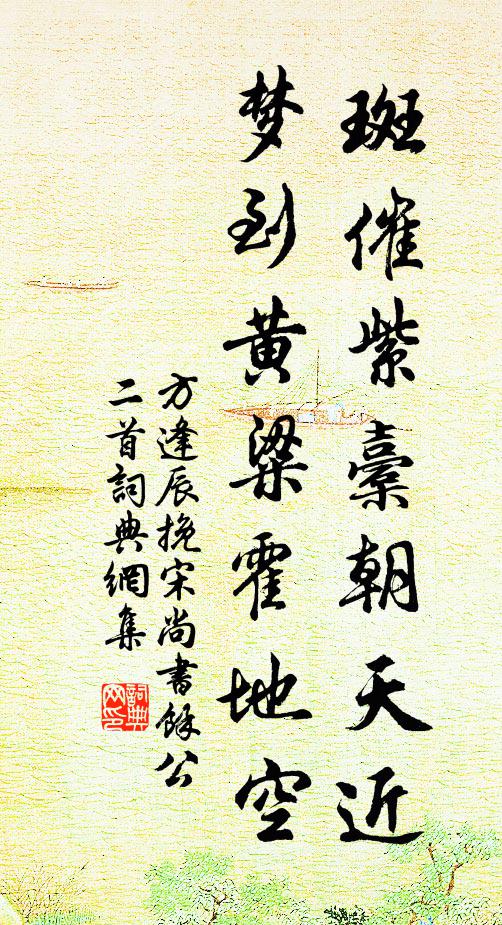 斑催紫橐朝天近
梦到黄粱霍地空
方逢辰挽宋尚書餘公
二首詞典網集
詞典网印